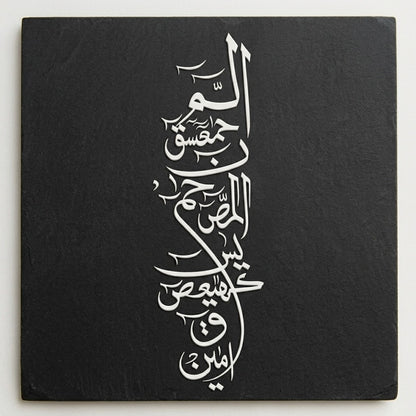 الـمّ
حمعسق
ن
حم
المصّ
يس
كهيعص
ق
امين